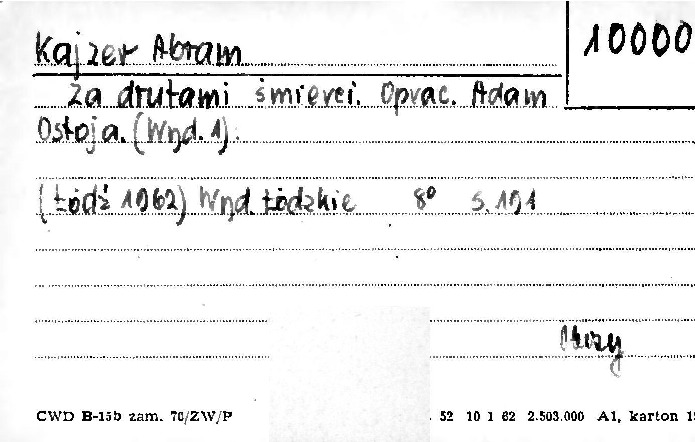 Kajzer Abram
10000
Za drutami śmierci. Oprac. Adam
Ostoja. (Wyd. 1).
(Łódź 1962) Wyd. Łódzkie 8° s. 191
CWD B-15b zam. 70/ZW/P
52 10 1 62 2.503.000 A1, karton